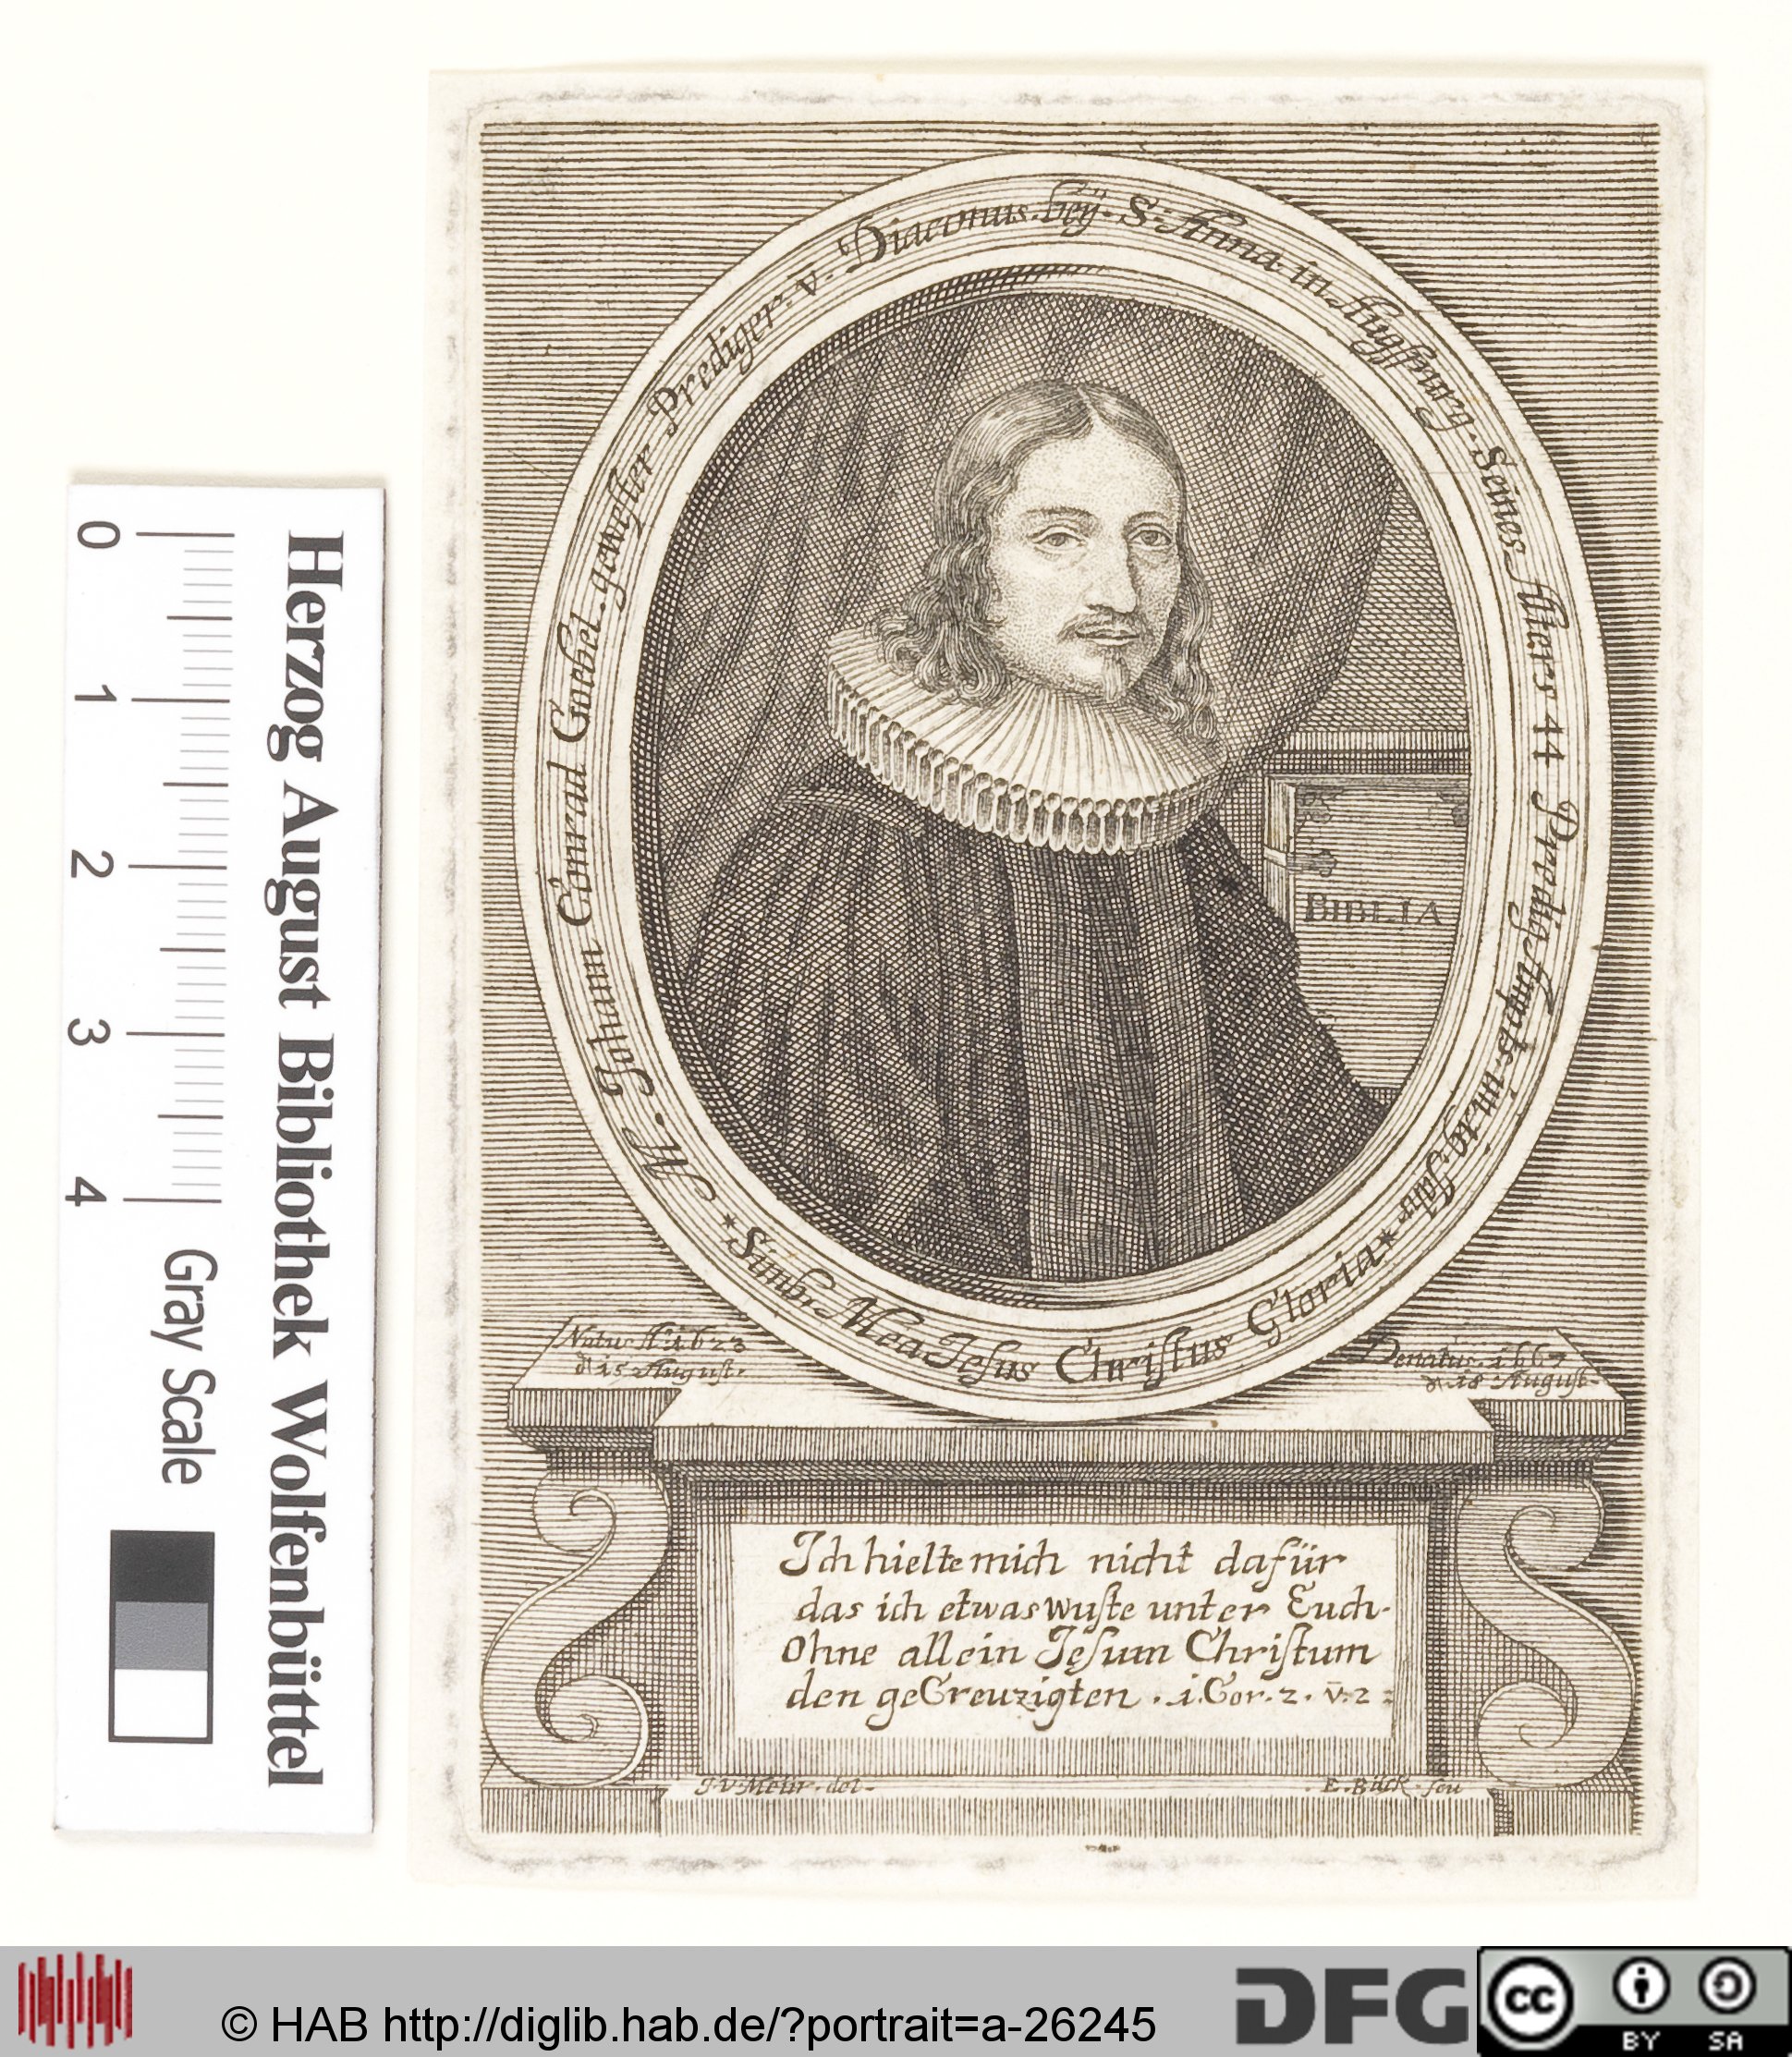 M. Joham Conrad Goebel. gewester Prediger. v. Diaconus. beÿ. S. Anna in Augspurg. Seines Alters 44 Predig Ampts. im 19. Jahr *
Simb. Mea Jesus Christus Gloria *
BIBLIA
Natus A. 1623
d 15 August.
Denatus. 1667
d. 18 August.
Ich hielte mich nicht dafür
das ich etwas wuste unter Euch.
Ohne allein Jesum Christum
den geCreuzigten. 1. Cor. 2. v. 2:
J. V. Meür. del.
E. Bäck. scu
Herzog August Bibliothek Wolfenbüttel
0 1 2 3 4 Gray Scale
© HAB http://diglib.hab.de/?portrait=a-26245
DFG
cc BY SA